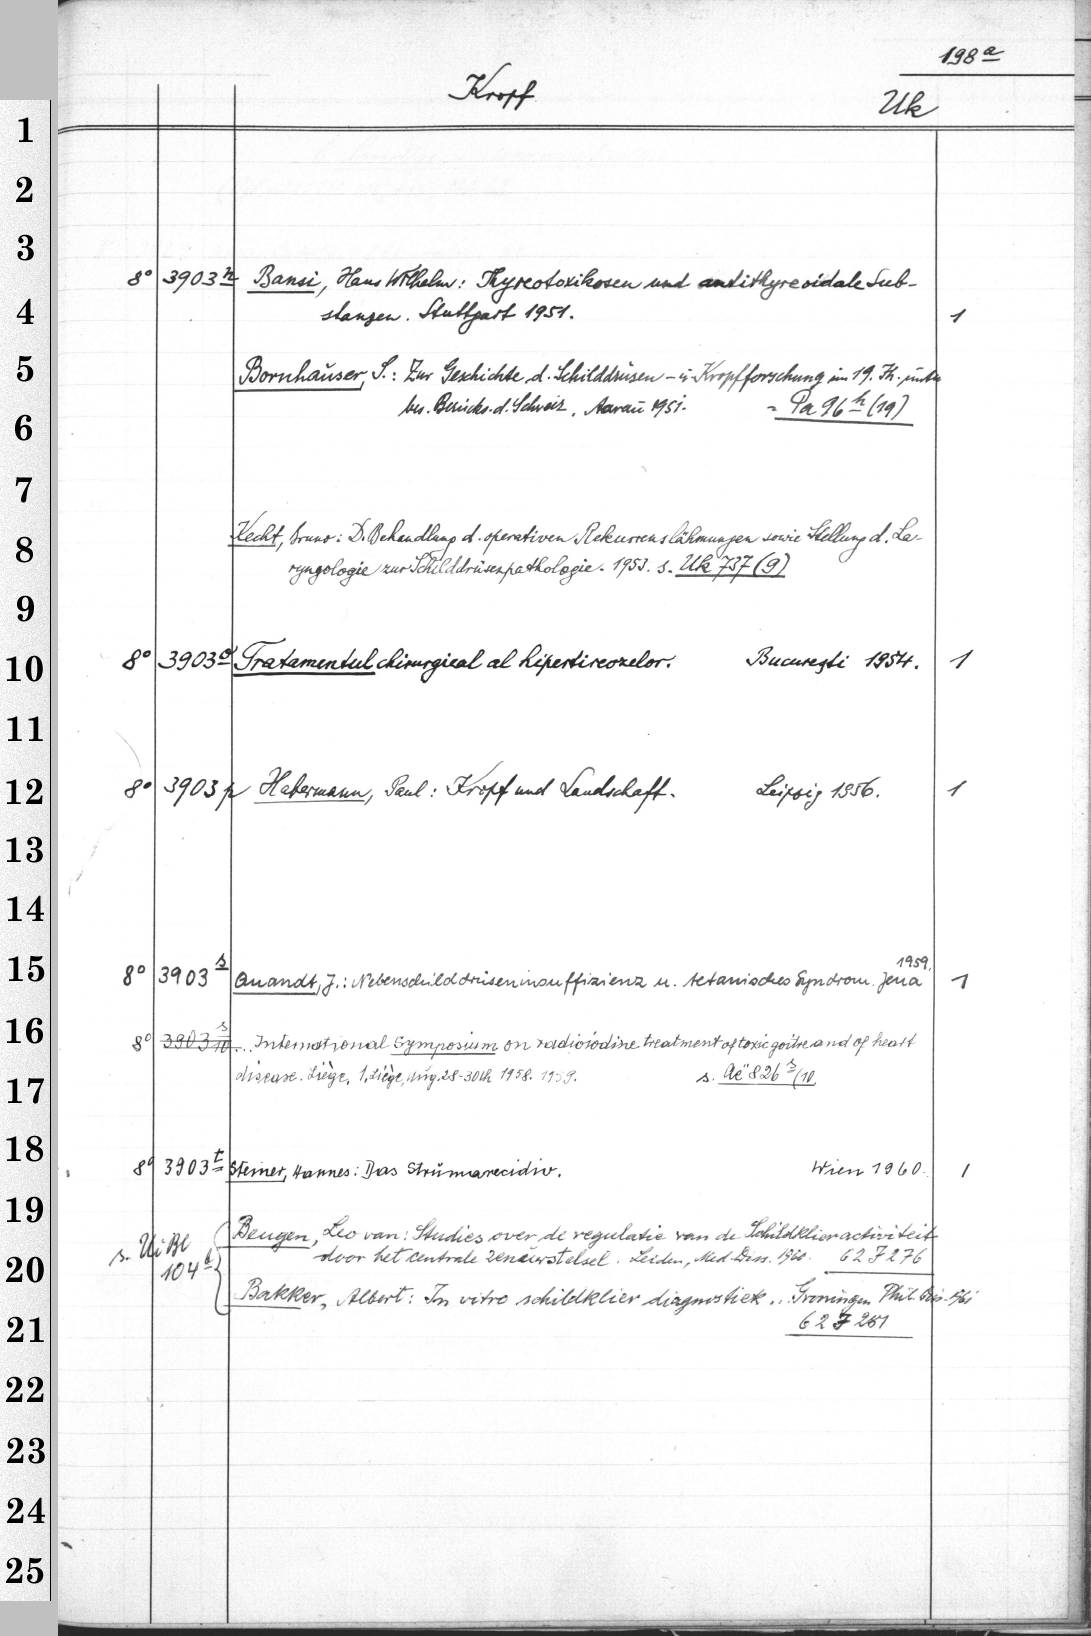 198 a
Kropf
Uk
1
2
3
8° 3903 n Bansi, Hans Wilhelm: Thyreotoxikosen und antithyreoidale Sub-
4 stanzen. Stuttgart 1951. 1
5 Bornhauser, S.: Zur Geschichte d. Schilddrüsen- u. Kropfforschung im 19. Jh. unter
bes. Berücks. d. Schweiz. Aarau 1951. = Pa 96 h (19)
6
7
8 Kecht, Bruno: D. Behandlung d. operativen Rekurrenslähmungen sowie Stellung d. La-
ryngologie zur Schilddrüsenpathologie. 1953. s. Uk 737 (9)
9
10 8° 3903 o Tratamentul chirurgical al hipertireozelor. București 1954. 1
11
12 8° 3903 p Habermann, Paul: Kropf und Landschaft. Leipzig 1956. 1
13
14
15 8° 3903 s Quandt, J.: Nebenschilddrüseninsuffizienz u. tetanisches Syndrom. Jena 1959. 1
16 8° 3903 s/10 ... International Symposium on radioiodine treatment of toxic goitre and of heart
17 disease. Liège. 1, Liège, Aug. 28-30th 1958. 1959. s. Ae 826 s/10
18 8° 3903 t Steiner, Hannes: Das Strumarecidiv. Wien 1960. 1
19 Beugen, Leo van: Studies over de regulatie van de Schildklieractiviteit
20 s. Ui Bl 104 b door het centrale zenuwstelsel. Leiden, Med. Diss. 1960. 62 F 276
Bakker, Albert: In vitro schildklier diagnostiek. Groningen Phil. Diss. 1961
21 62 F 251
22
23
24
25